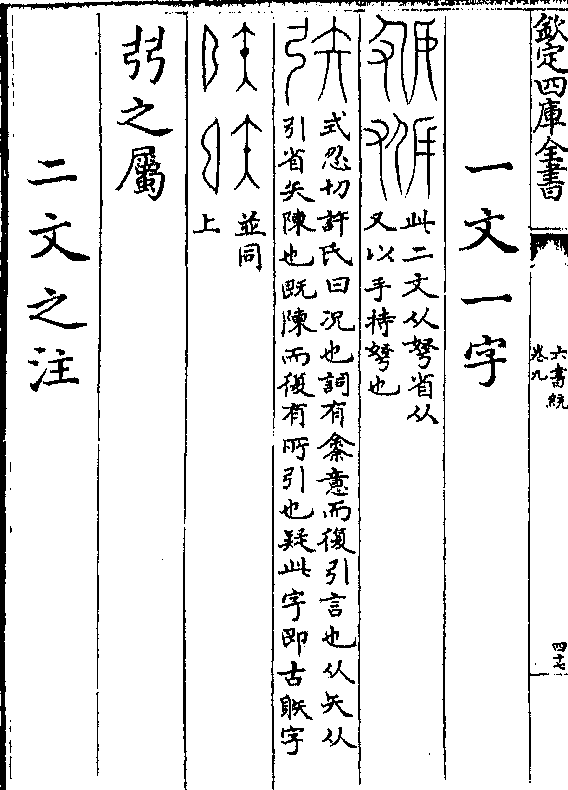 欽定四庫全書
六書統
卷九
四十七
一文一字
此二文从弩省从
又以手持弩也
式忍切許氏曰况也詞有叅意而復引言也从矢从
引省矢陳也既陳而復有所引也疑此字即古字
並同
上
弜之屬
二文之注